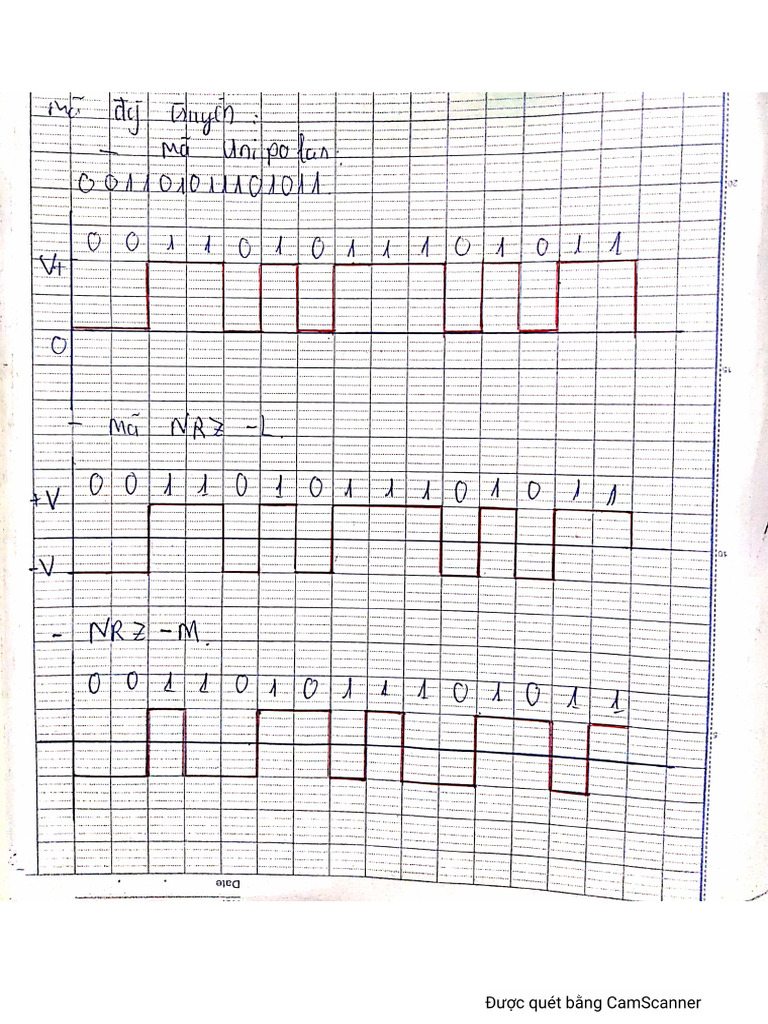 Mã đg truyền:
- mã Unipolar:
001101011101011
0 0 1 1 0 1 0 1 1 1 0 1 0 1 1
V+
0
20
15
- Mã NRZ-L.
0 0 1 1 0 1 0 1 1 1 0 1 0 1 1
+V
-V
10
- NRZ-M.
0 0 1 1 0 1 0 1 1 1 0 1 0 1 1
5
Date
Được quét bằng CamScanner